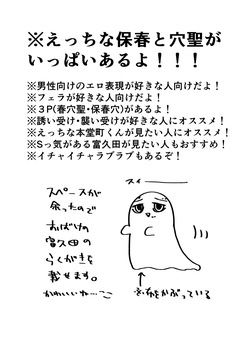 ※えっちな保春と穴聖が
いっぱいあるよ！！！
※男性向けのエロ表現が好きな人向けだよ！
※フェラが好きな人向けだよ！
※３P(春穴聖・保春穴)があるよ！
※誘い受け・襲い受けが好きな人にオススメ！
※えっちな本堂町くんが見たい人にオススメ！
※Sっ気がある富久田が見たい人もおすすめ！
※イチャイチャラブラブもあるぞ！
スィー
スペースが
余ったので
おばけの
富久田の
らくがきを
載せます。
かわいいね…
をかぶっている